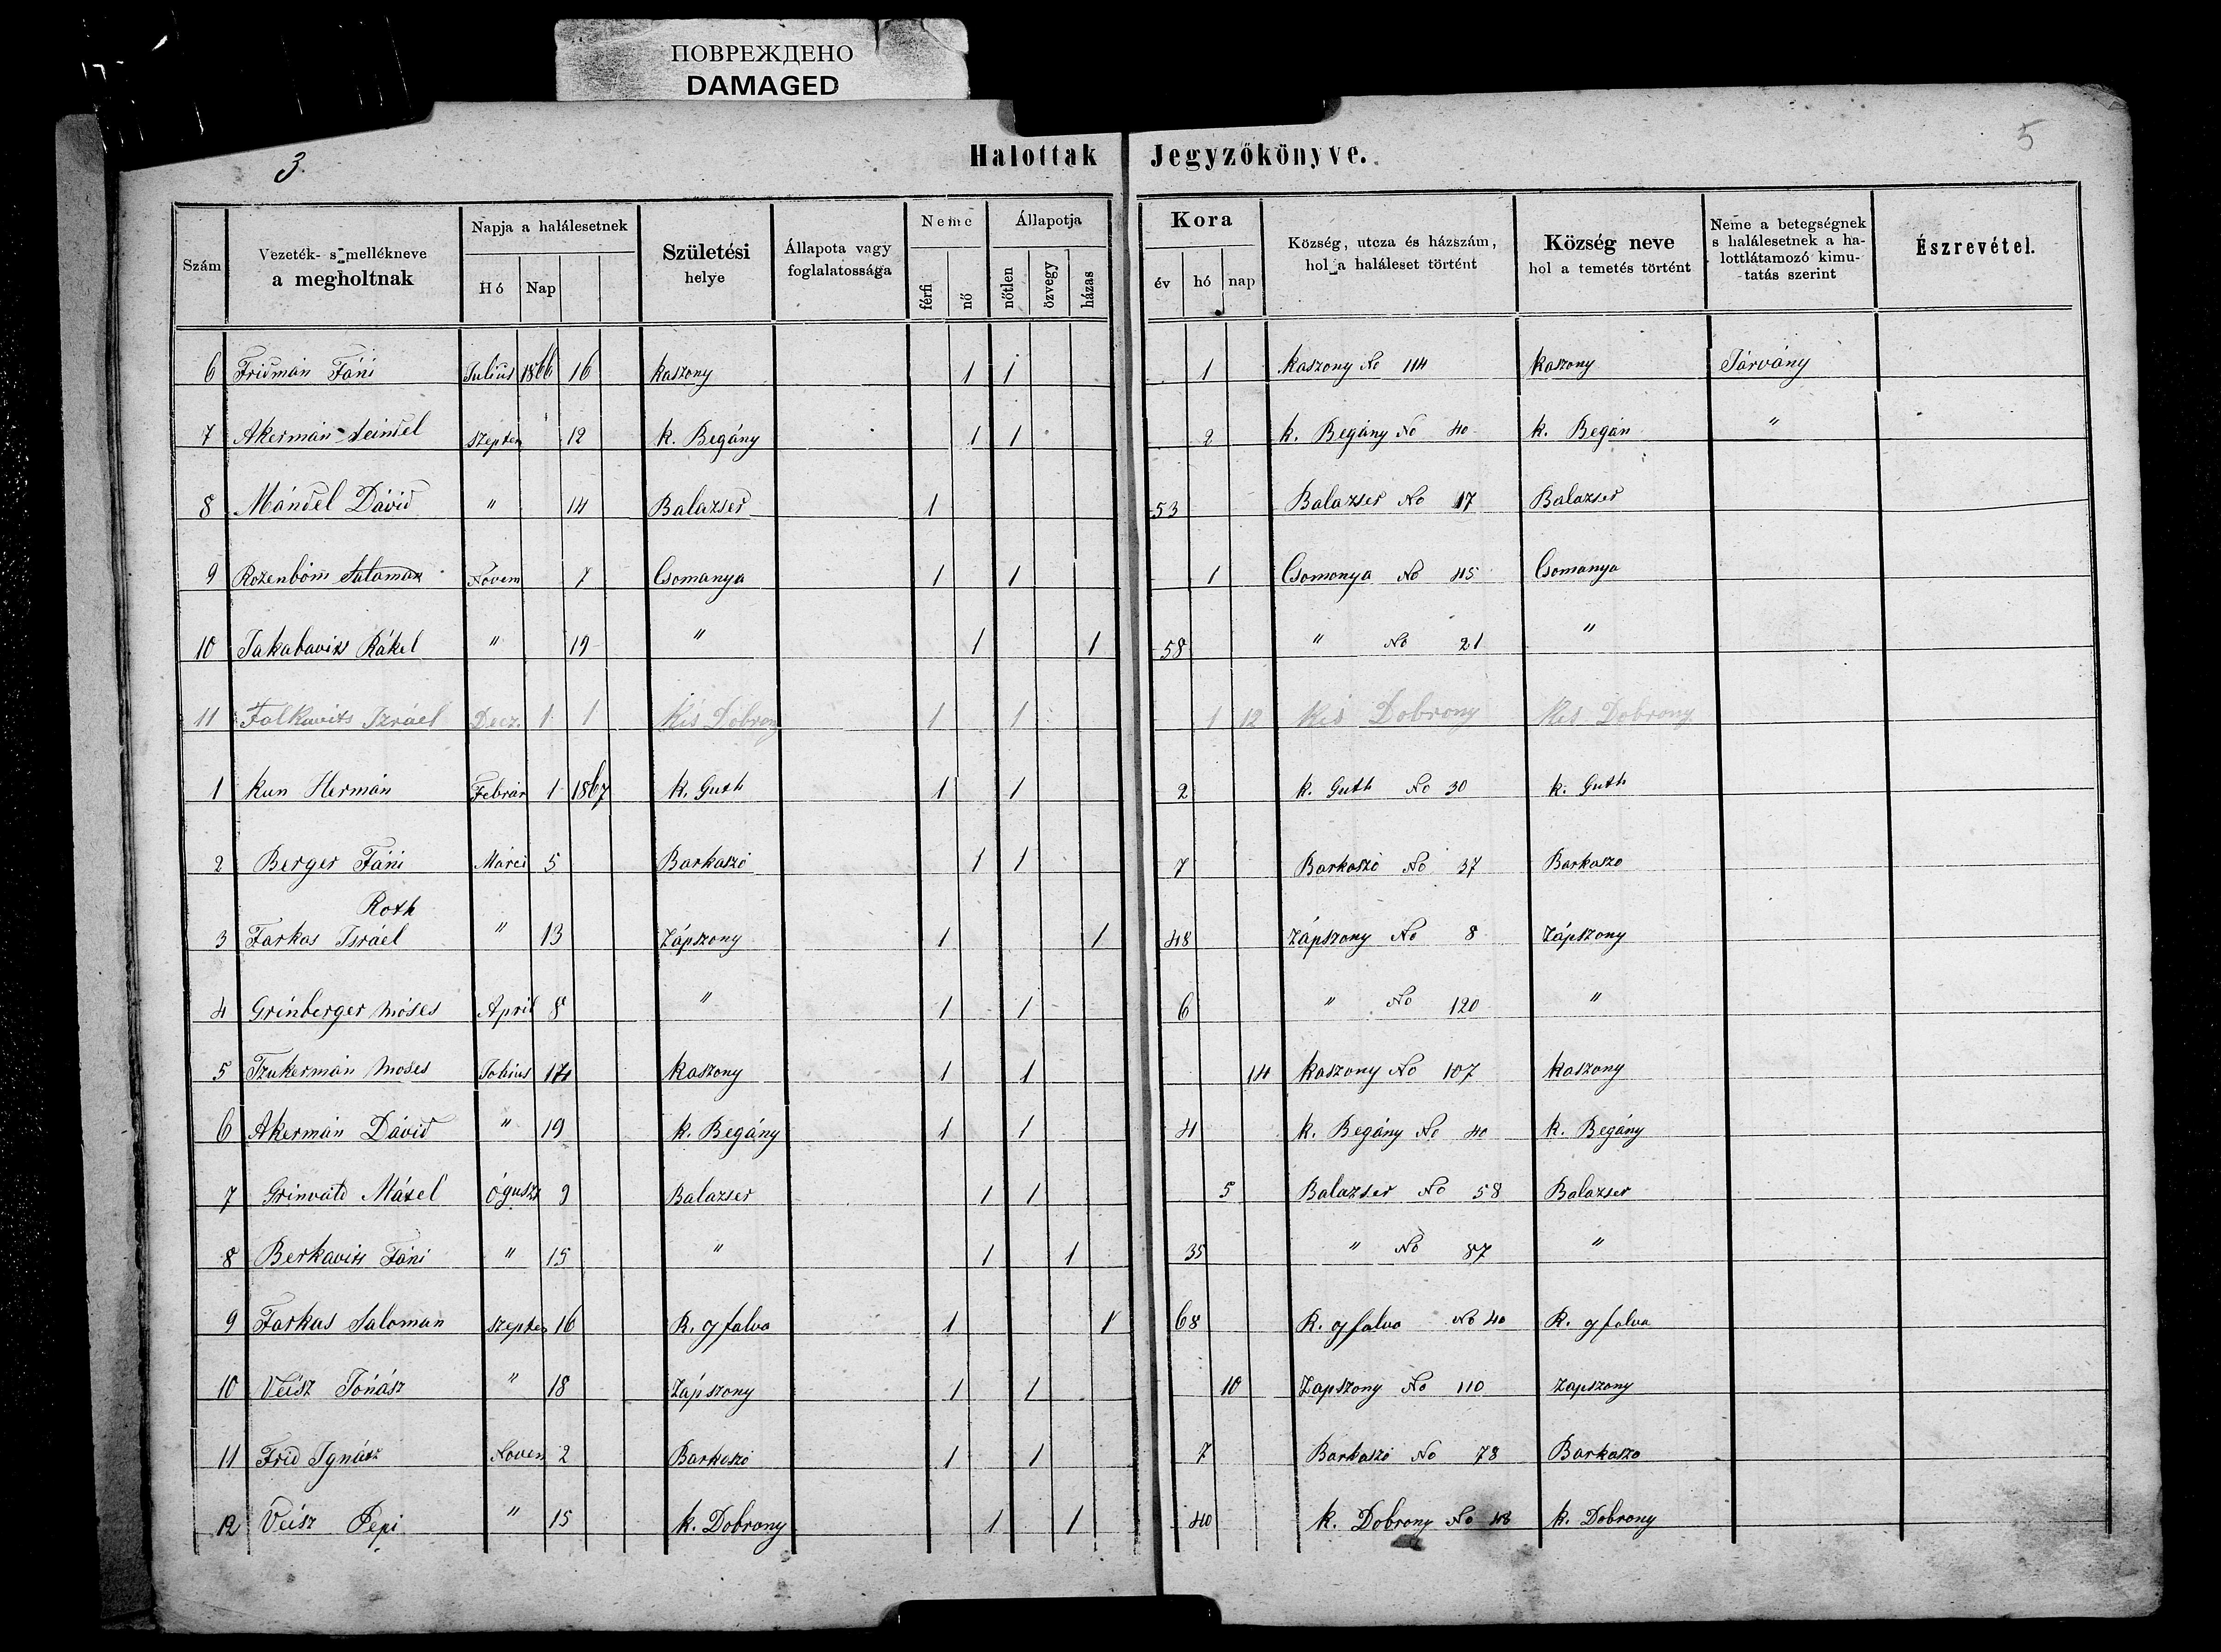 ПОВРЕЖДЕНО
DAMAGED
3.
5
Halottak Jegyzőkönyve.
Szám
Vezeték- s mellékneve a megholtnak
Napja a halálesetnek
Hó Nap
Születési helye
Állapota vagy foglalatossága
Neme
férfi nő
Állapotja
nőtlen özvegy házas
Kora
év hó nap
Község, utcza és házszám, hol a haláleset történt
Község neve hol a temetés történt
Neme a betegségnek s halálesetnek a halottlátamozó kimutatás szerint
Észrevétel.
6 Fridmán Fáni Julius 1866 16 Kaszony 1 1 1 Kaszony No 114 Kaszony Járvány
7 Akermán Szepten 12 k. Begány 1 1 2 k. Begány No 40 k. Begán "
8 Mándel Dávid " 14 Balazser 1 53 Balazser No 17 Balazser
9 Rozenbom Salaman Novem 7 Csomanya 1 1 1 Csomonya No 45 Csomanya
10 Jakabavits Rákel " 19 " 1 1 58 " No 21 "
11 Falkavits Izráel Decz. 1 1 Kis Dobrony 1 1 1 12 Kis Dobrony Kis Dobrony
1 Kun Hermán Febrár 1 1867 k. Guth 1 1 2 k. Guth No 30 k. Guth
2 Berger Fáni Márci 5 Barkaszó 1 1 7 Barkaszó No 37 Barkaszo
Roth
3 Farkas Isráel " 13 Zápszony 1 1 48 Zápszony No 8 Zápszony
4 Grinberger Móses April 8 " 1 1 6 " No 120 "
5 Tzukermán Moses 14 Kaszony 1 1 14 Kaszony No 107 Kaszony
6 Akermán Dávid " 19 k. Begány 1 1 4 k. Begány No 40 k. Begány
7 Grinvald Mátel Óguszt 9 Balazser 1 1 5 Balazser No 58 Balazser
8 Berkavits Fáni " 15 " 1 1 35 " No 87 "
9 Farkas Saloman Szepten 16 R. gyfalva 1 1 68 R. gyfalva No 40 R. gyfalva
10 Veisz Jónász " 18 Zápszony 1 1 10 Zapszony No 110 Zapszony
11 Frid Ignátz Noven 2 Barkaszó 1 1 7 Barkaszó No 78 Barkaszo
12 Veisz Pepi " 15 k. Dobrony 1 1 40 k. Dobrony No 48 k. Dobrony